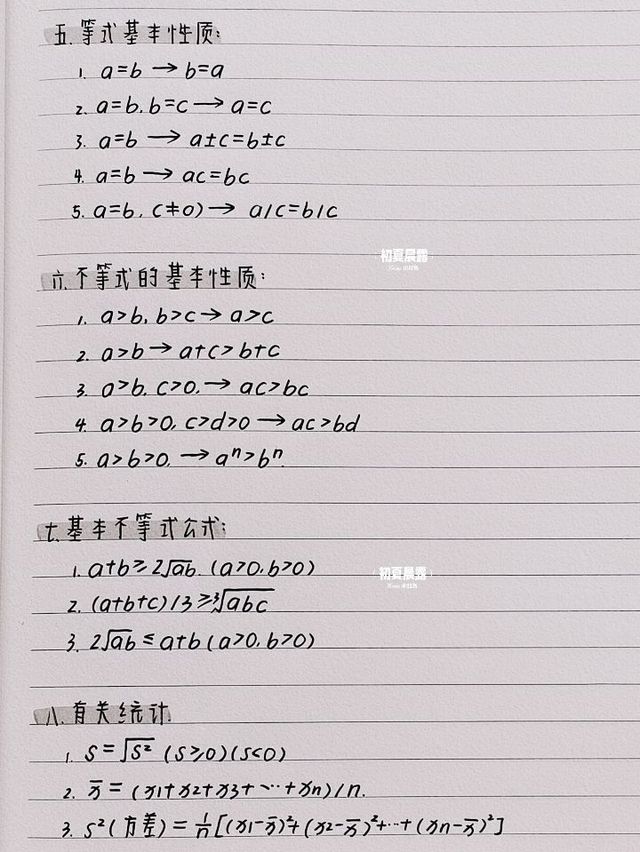 五.等式基本性质:
1. a=b → b=a
2. a=b. b=c → a=c
3. a=b → a±c=b±c
4. a=b → ac=bc
5. a=b, c≠0) → a/c=b/c
初夏晨露
六.不等式的基本性质:
1. a>b, b>c → a>c
2. a>b → a+c>b+c
3. a>b. c>0, → ac>bc
4. a>b>0, c>d>0 → ac>bd
5. a>b>0, → aⁿ>bⁿ.
七.基本不等式公式:
1. a+b≥2√ab. (a>0.b>0)
初夏晨露
2. (a+b+c)/3≥³√abc
3. 2√ab≤a+b(a>0.b>0)
八.有关统计
1. S=√S² (S≥0)(S<0)
2. x̄=(x1+x2+x3+…+xn)/n.
3. S²(方差)=1/n[(x1-x̄)²+(x2-x̄)²+…+(xn-x̄)²]